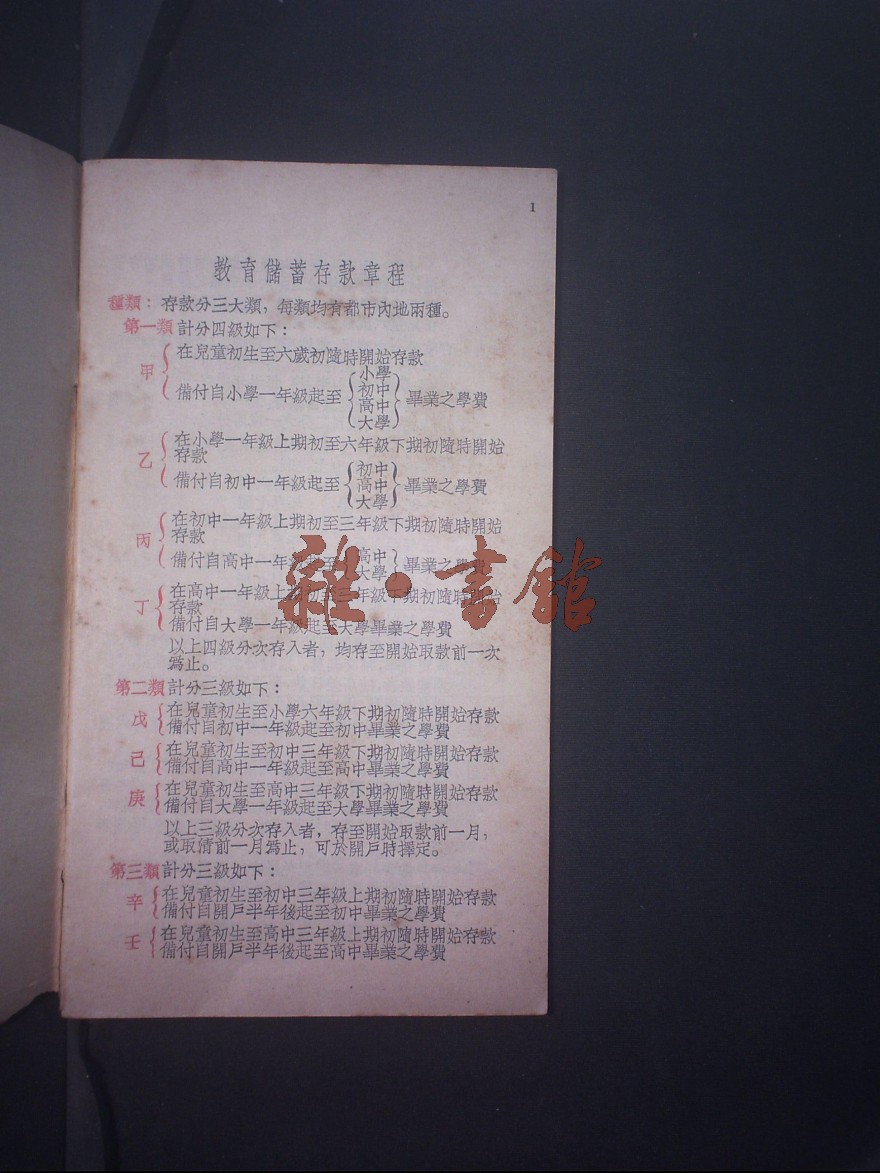 1
教育儲蓄存款章程
種類：存款分三大類，每類均有都市內地兩種。
第一類計分四級如下：
甲
在兒童初生至六歲初隨時開始存款
備付自小學一年級起至
小學
初中
高中
大學
畢業之學費
乙
在小學一年級上期初至六年級下期初隨時開始
存款
備付自初中一年級起至
初中
高中
大學
畢業之學費
丙
在初中一年級上期初至三年級下期初隨時開始
存款
備付自高中一年級起至
高中
大學
畢業之學費
丁
在高中一年級上期初至三年級下期初隨時開始
存款
備付自大學一年級起至大學畢業之學費
以上四級分次存入者，均存至開始取款前一次
為止。
第二類計分三級如下：
戊
在兒童初生至小學六年級下期初隨時開始存款
備付自初中一年級起至初中畢業之學費
己
在兒童初生至初中三年級下期初隨時開始存款
備付自高中一年級起至高中畢業之學費
庚
在兒童初生至高中三年級下期初隨時開始存款
備付自大學一年級起至大學畢業之學費
以上三級分次存入者，存至開始取款前一月，
或取清前一月為止，可於開戶時擇定。
第三類計分三級如下：
辛
在兒童初生至初中三年級上期初隨時開始存款
備付自開戶半年後起至初中畢業之學費
壬
在兒童初生至高中三年級上期初隨時開始存款
備付自開戶半年後起至高中畢業之學費
雜·書館